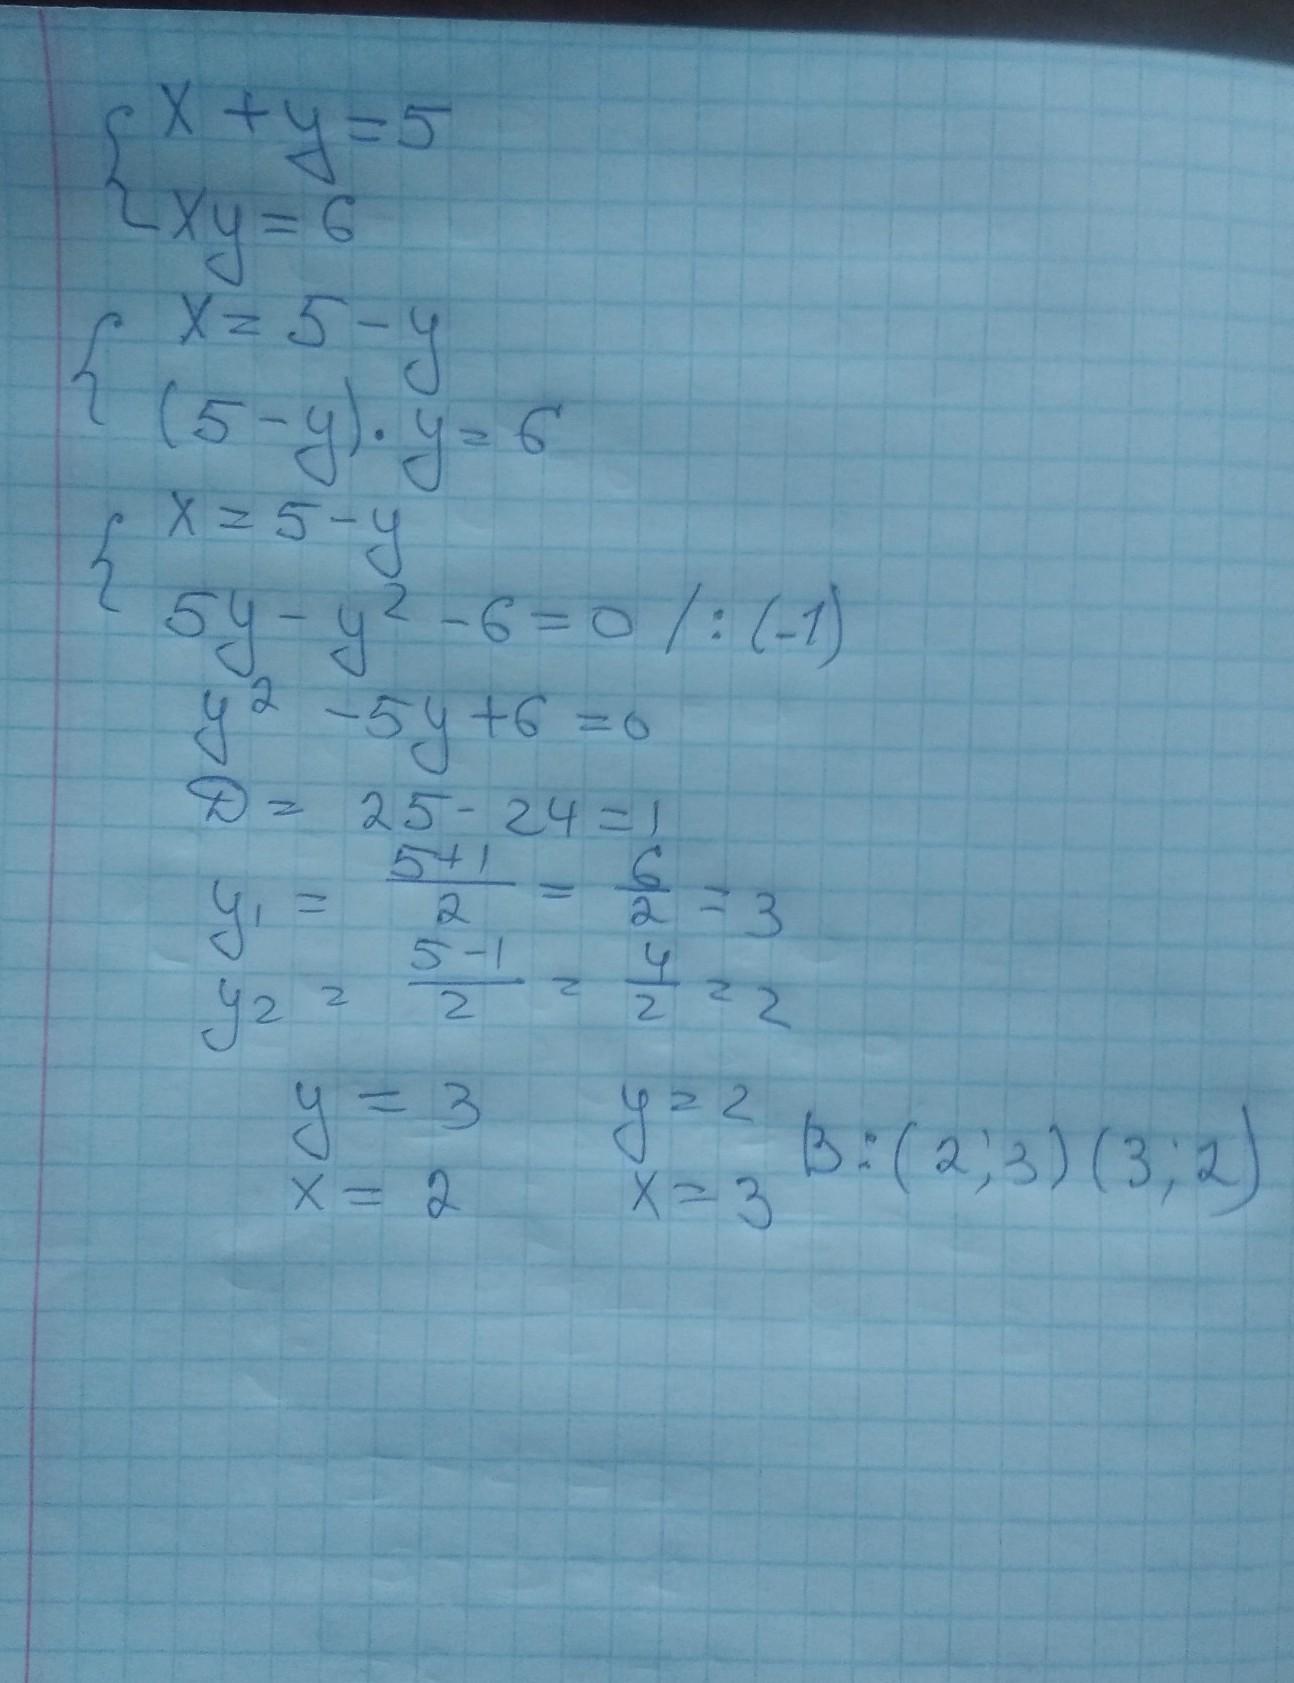 { x + y = 5
xy = 6
{ x = 5 - y
(5 - y) · y = 6
{ x = 5 - y
5y - y² - 6 = 0 / : (-1)
y² - 5y + 6 = 0
D = 25 - 24 = 1
y₁ = (5+1)/2 = 6/2 = 3
y₂ = (5-1)/2 = 4/2 = 2
y = 3 y = 2
x = 2 x = 3 В: (2; 3) (3; 2)